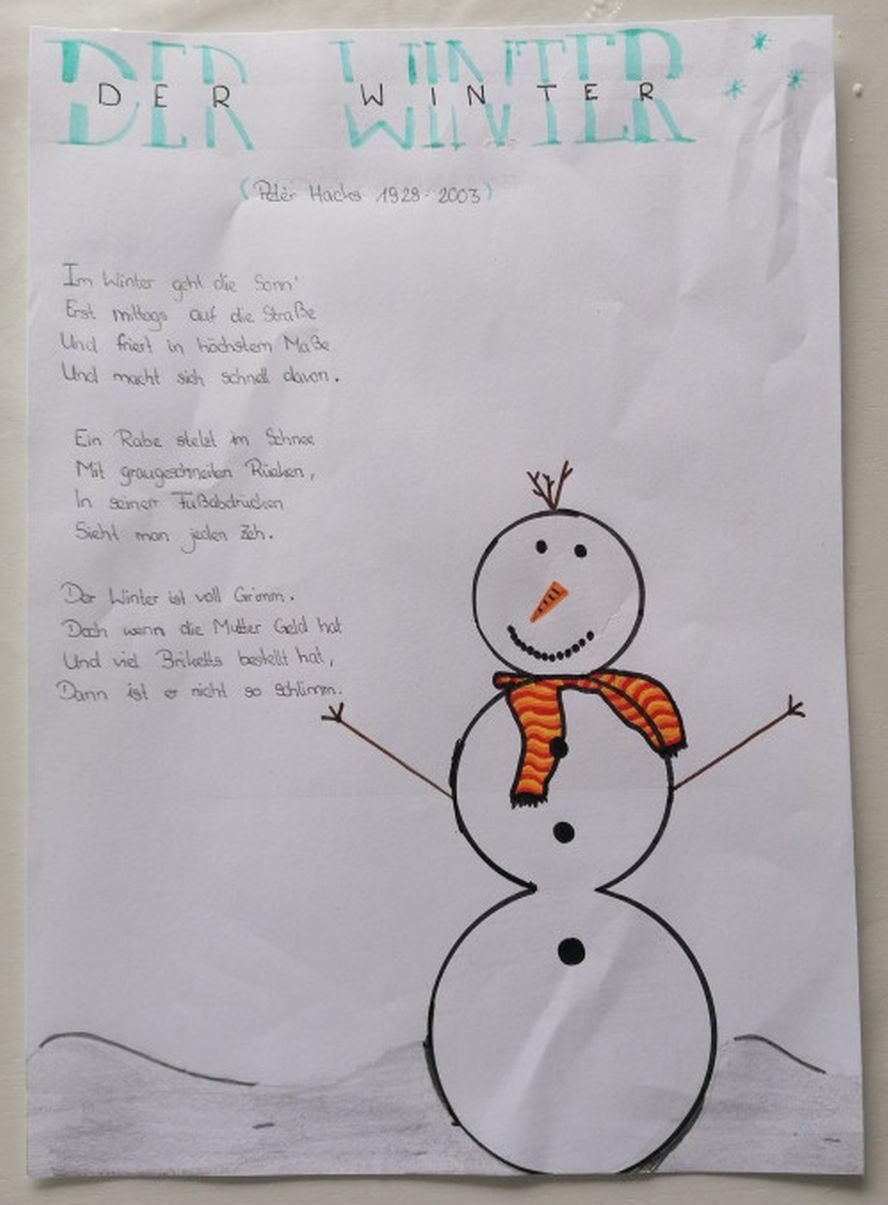 DER WINTER
(Peter Hacks 1928-2003)
Im Winter geht die Sonn'
Erst mittags auf die Straße
Und friert in höchstem Maße
Und macht sich schnell davon.
Ein Rabe stelzt im Schnee
Mit graugeschneiten Rücken,
In seinen Fußabdrücken
Sieht man jeden Zeh.
Der Winter ist voll Grimm.
Doch wenn die Mutter Geld hat
Und viel Briketts bestellt hat,
Dann ist er nicht so schlimm.